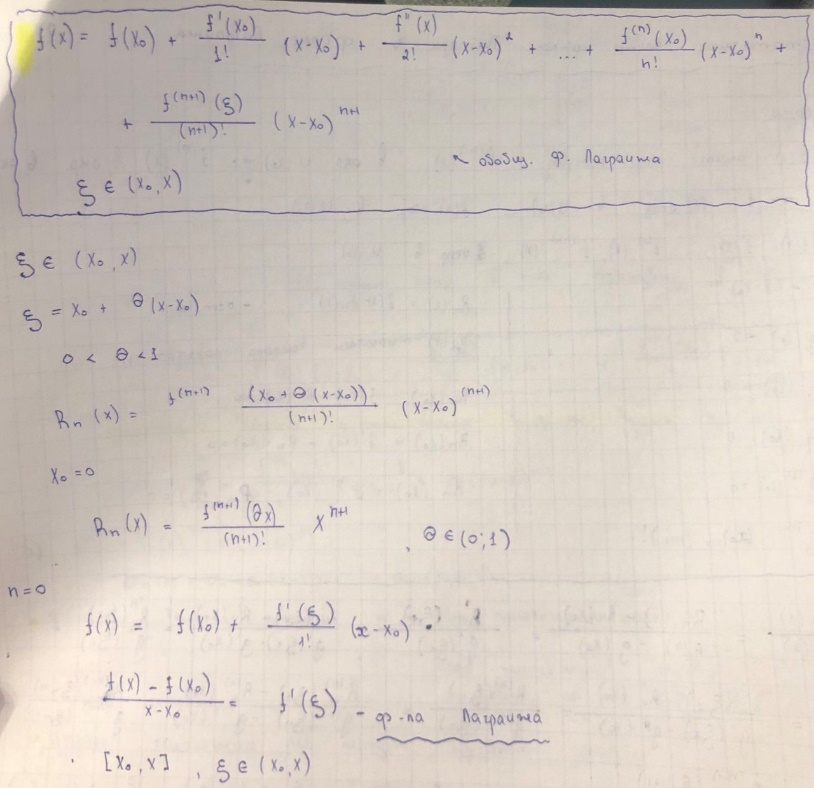 f(x) = f(x₀) + f'(x₀)/1! (x-x₀) + f''(x)/2! (x-x₀)² + ... + f⁽ⁿ⁾(x₀)/n! (x-x₀)ⁿ +
+ f⁽ⁿ⁺¹⁾(ξ)/(n+1)! (x-x₀)ⁿ⁺¹
↖ обобщ. ф. Лагранжа
ξ ∈ (x₀, x)
ξ ∈ (x₀, x)
ξ = x₀ + θ(x-x₀)
0 < θ < 1
Rₙ(x) = f⁽ⁿ⁺¹⁾ (x₀ + θ(x-x₀))/(n+1)! (x-x₀)⁽ⁿ⁺¹⁾
x₀ = 0
Rₙ(x) = f⁽ⁿ⁺¹⁾(θx)/(n+1)! xⁿ⁺¹ , θ ∈ (0;1)
n=0
f(x) = f(x₀) + f'(ξ)/1! (x-x₀)
f(x) - f(x₀)/x-x₀ = f'(ξ) - ф-ла Лагранжа
[x₀, x] , ξ ∈ (x₀, x)